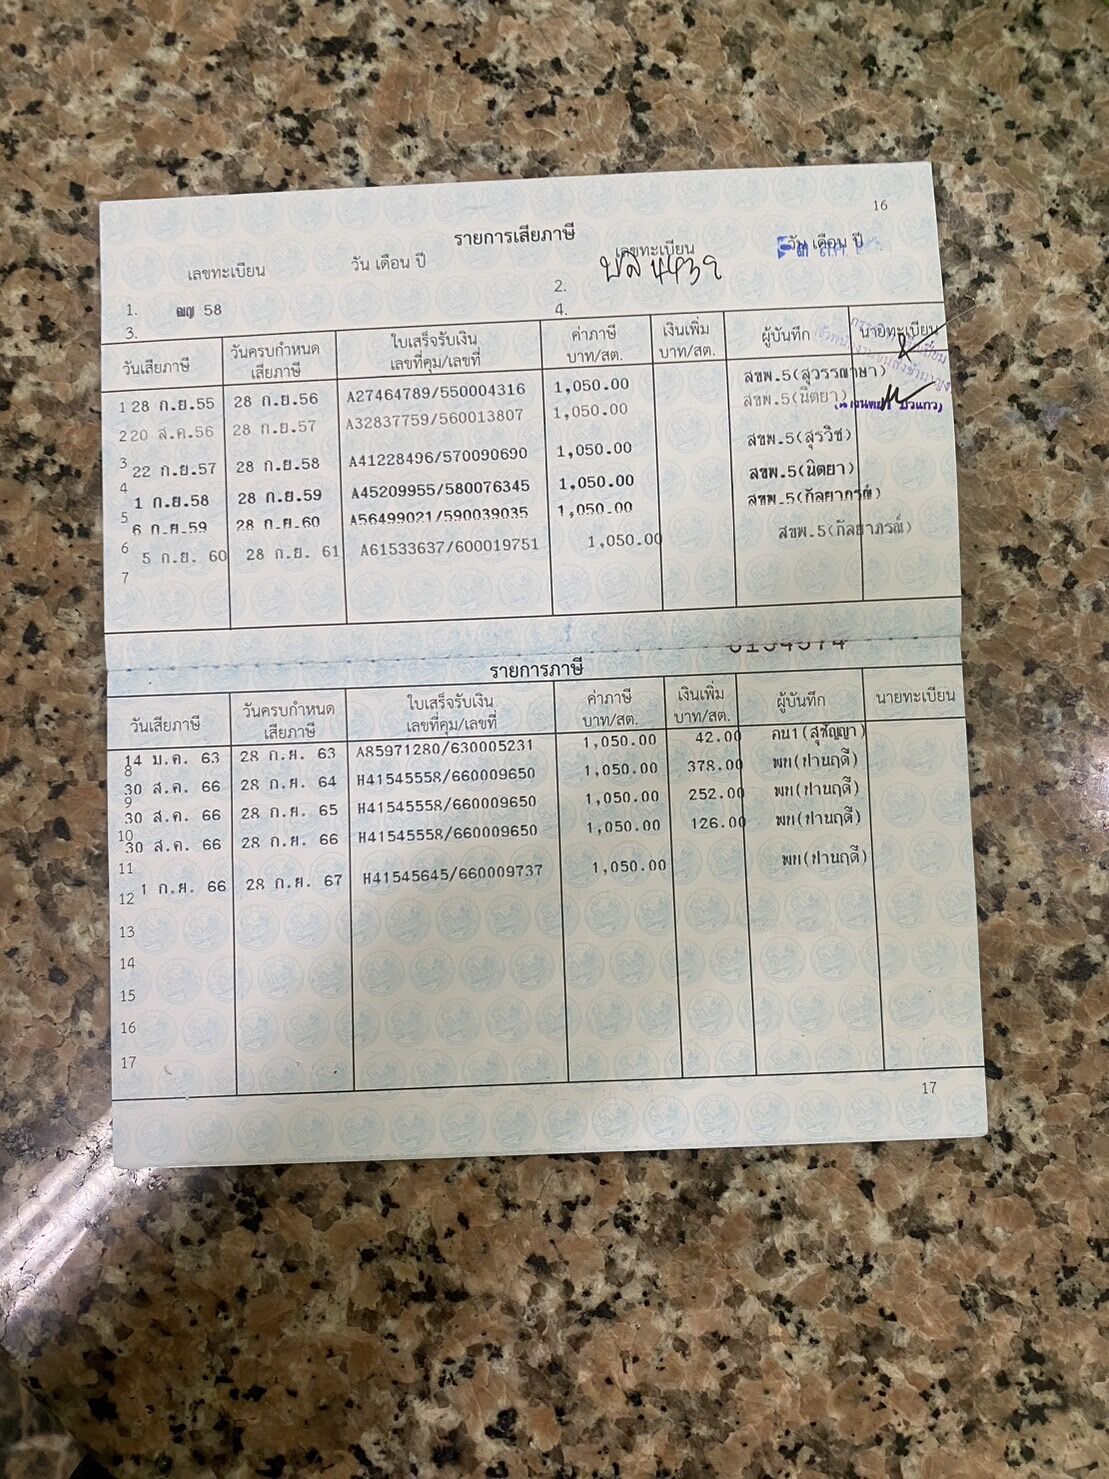 16
รายการเสียภาษี
เลขทะเบียน วัน เดือน ปี เลขทะเบียน วัน เดือน ปี
1. ฌญ 58 2. 4439
3. 4.
วันเสียภาษี วันครบกำหนดเสียภาษี ใบเสร็จรับเงิน เลขที่คุม/เลขที่ ค่าภาษี บาท/สต. เงินเพิ่ม บาท/สต. ผู้บันทึก นายทะเบียน
1 28 ก.ย.55 28 ก.ย.56 A27464789/550004316 1,050.00 สขพ.5(สุวรรณาษา)
2 20 ส.ค.56 28 ก.ย.57 A32837759/560013807 1,050.00 สขพ.5(นิตยา)
3 22 ก.ย.57 28 ก.ย.58 A41228496/570090690 1,050.00 สขพ.5(สุรวิช)
4 1 ก.ย.58 28 ก.ย.59 A45209955/580076345 1,050.00 สขพ.5(นิตยา)
5 6 ก.ย.59 28 ก.ย.60 A56499021/590039035 1,050.00 สขพ.5(กัลยาภรณ์)
6 5 ก.ย. 60 28 ก.ย. 61 A61533637/600019751 1,050.00 สขพ.5(กัลยาภรณ์)
7
รายการภาษี
วันเสียภาษี วันครบกำหนดเสียภาษี ใบเสร็จรับเงิน เลขที่คุม/เลขที่ ค่าภาษี บาท/สต. เงินเพิ่ม บาท/สต. ผู้บันทึก นายทะเบียน
14 ม.ค. 63 28 ก.ย. 63 A85971280/630005231 1,050.00 42.00 คน1(สุชัญญา)
8 30 ส.ค. 66 28 ก.ย. 64 H41545558/660009650 1,050.00 378.00 พท(ปานฤดี)
9 30 ส.ค. 66 28 ก.ย. 65 H41545558/660009650 1,050.00 252.00 พท(ปานฤดี)
10 30 ส.ค. 66 28 ก.ย. 66 H41545558/660009650 1,050.00 126.00 พท(ปานฤดี)
11
12 1 ก.ย. 66 28 ก.ย. 67 H41545645/660009737 1,050.00 พท(ปานฤดี)
13
14
15
16
17
17